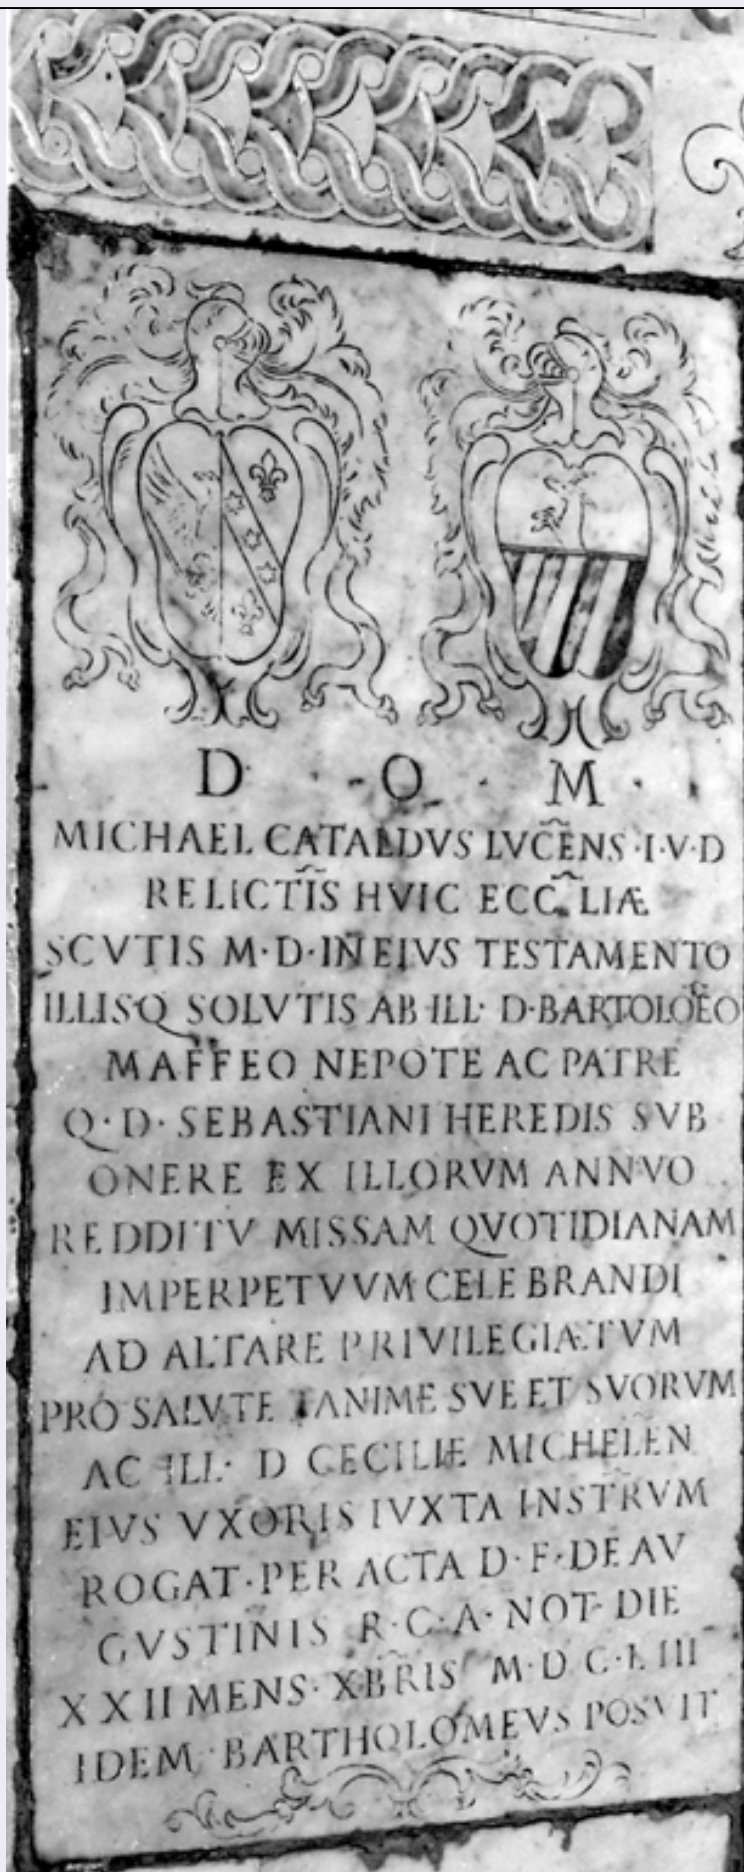 D · O · M ·
MICHAEL CATALDVS LVCEÑS · I · V · D
RELICTĪS HVIC ECC̃LIÆ
SCVTIS M · D · IN EIVS TESTAMENTO
ILLISQ SOLVTIS AB ILL · D · BARTOLOẼO
MAFFEO NEPOTE AC PATRE
Q · D · SEBASTIANI HEREDIS SVB
ONERE EX ILLORVM ANNVO
REDDITV MISSAM QVOTIDIANAM
IMPERPETVVM CELEBRANDI
AD ALTARE PRIVILEGIÆTVM
PRO SALVTE TANIME SVE ET SVORVM
AC ILL · D CECILIE MICHELEÑ
EIVS VXORIS IVXTA INSTR̃VM
ROGAT · PER ACTA D · F · DE AV
GVSTINIS R · C · A · NOT · DIE
XXII MENS · XBR̃IS M · D C · L III
IDEM BARTHOLOMEVS POSVIT